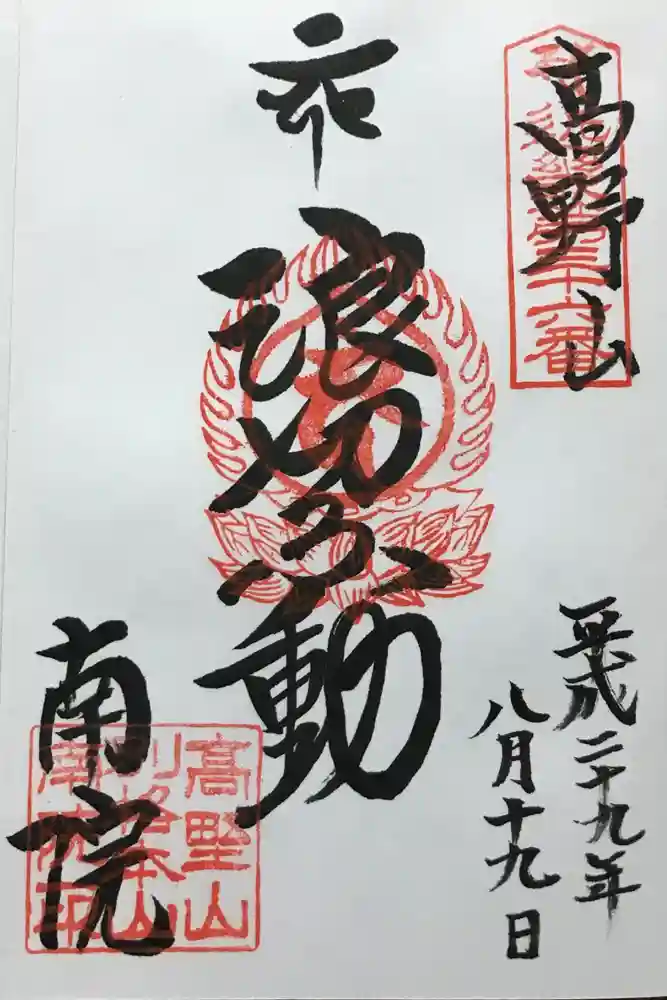 高野山
第三十六番
浪切不動
平成二十九年
八月十九日
南院
高野山
別格本山
南院印